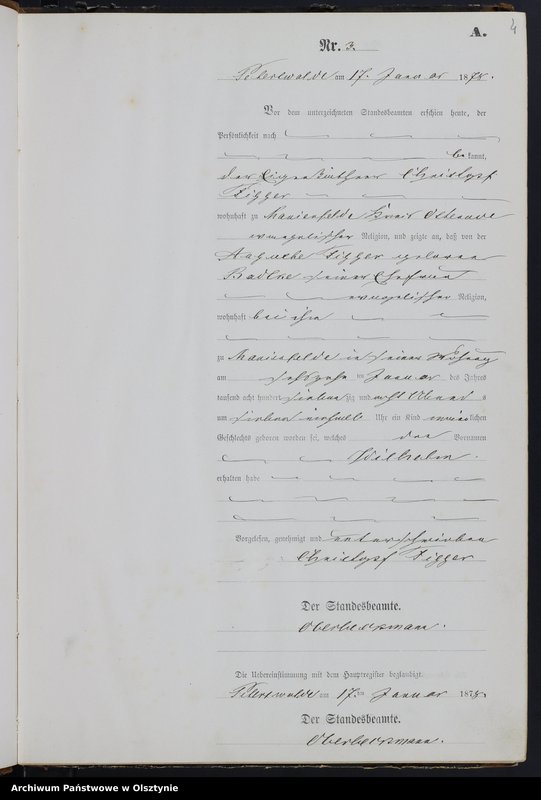 A.
4
Nr. 3.
Peterswalde am 17. Januar 1878.
Vor dem unterzeichneten Standesbeamten erschien heute, der
Persönlichkeit nach
bekannt,
der Eigenkäthner Christoph
wohnhaft zu Marienfelde Kreis Osterode
evangelischer Religion, und zeigte an, daß von der
geborene
seiner Ehefrau
evangelischer Religion,
wohnhaft bei ihm
zu Marienfelde in seiner Wohnung
am sechszehn ten Januar des Jahres
tausend acht hundert siebenzig und acht Abends
um sieben einhalb Uhr ein Kind männlichen
Geschlechts geboren worden sei, welches den Vornamen
Wilhelm.
erhalten habe
Vorgelesen, genehmigt und unterschrieben
Christoph
Der Standesbeamte.
Die Uebereinstimmung mit dem Hauptregister beglaubigt.
Peterswalde am 17. ten Januar 1878.
Der Standesbeamte.
Archiwum Państwowe w Olsztynie